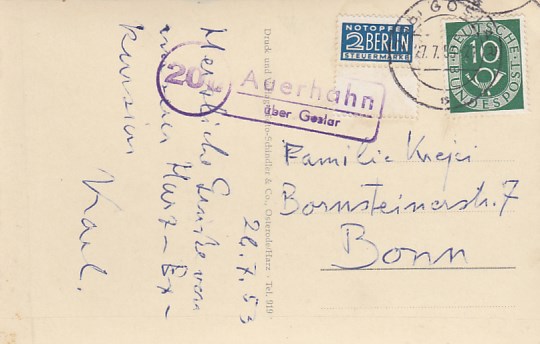 Herzliche Grüße von
unserer Harz-Ex-
kursion
Karl.
26.7.53
Druck und Verlag Schindler & Co., Osterode/Harz · Tel. 919
20b
Auerhahn
über Goslar
NOTOPFER
2 BERLIN
STEUERMARKE
GOS
27.7.5
10
DEUTSCHE
BUNDESPOST
Familie Krejci
Bornsteinerstr. 7
Bonn